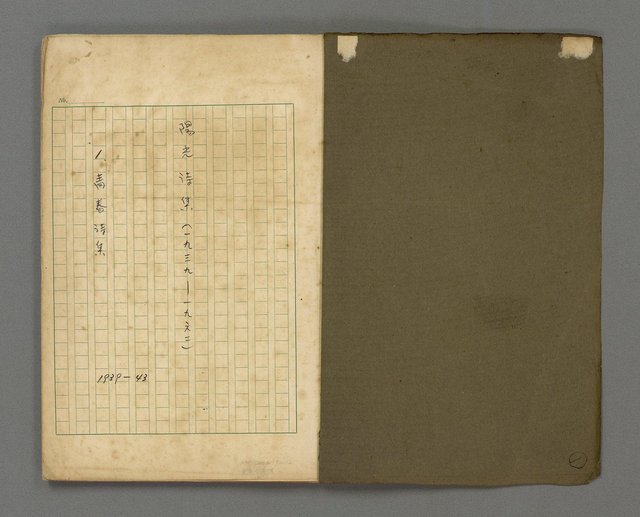 No.
陽光詩集(一九三九—一九六二)
1、青春詩集
1939-43